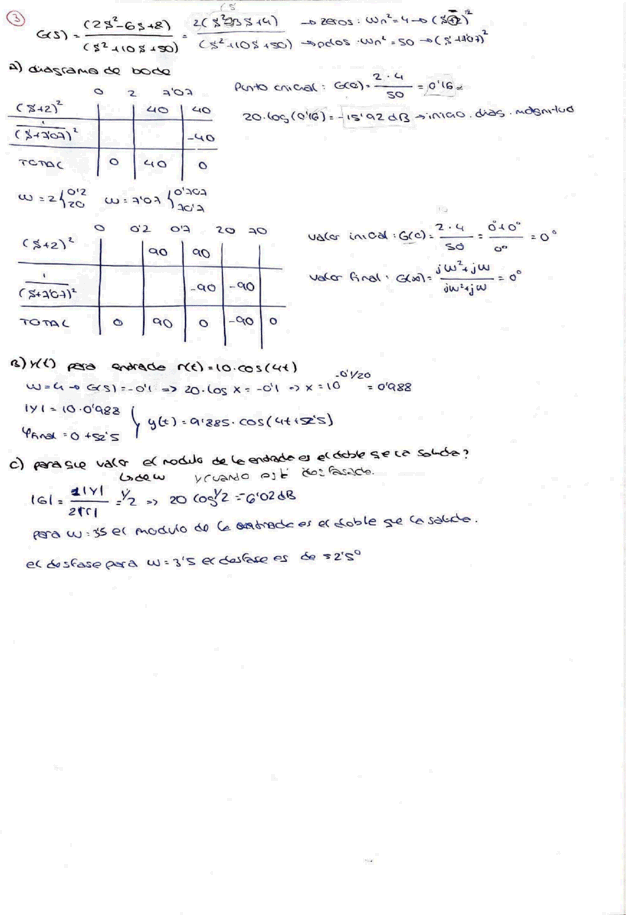 3
G(s) = (2s²-6s+8) / (s²+10s+50) = 2(s²-3s+4) / (s²+10s+50) → zeros: ωn²=4 → (s-2)²
→ polos ωn²=50 → (s+7'07)²
a) diagrama de bode
0 2 7'07
(s+2)² 40 40
1/(s+7'07)² -40
TOTAL 0 40 0
Punto inicial: G(0) = 2·4/50 = 0'16
20·log(0'16) = -15'92 dB → inicio diag. magnitud
ω=2 { 0'2 20 ω=7'07 { 0'707 70'7
0 0'2 0'7 20 70
(s+2)² 90 90
1/(s+7'07)² -90 -90
TOTAL 0 90 0 -90 0
valor inicial: G(0) = 2·4/50 = 0°+0°/0° = 0°
valor final: G(∞) = jω²+jω / jω²+jω = 0°
B) Y(t) para entrada r(t)=10·cos(4t)
ω=4 → G(s)=-0'1 => 20·log x = -0'1 → x = 10^(-0'1/20) = 0'988
|Y| = 10·0'988
φfinal = 0+52'5
y(t) = 9'885·cos(4t+52'5)
c) para que valor el modulo de la entrada es el doble que la salida?
↳ de ω y cuando está desfasado.
|G| = 1|Y| / 2|r| = 1/2 => 20 log 1/2 = -6'02 dB
para ω=3'5 el modulo de la entrada es el doble que la salida.
el desfase para ω=3'5 el desfase es de 52'5°